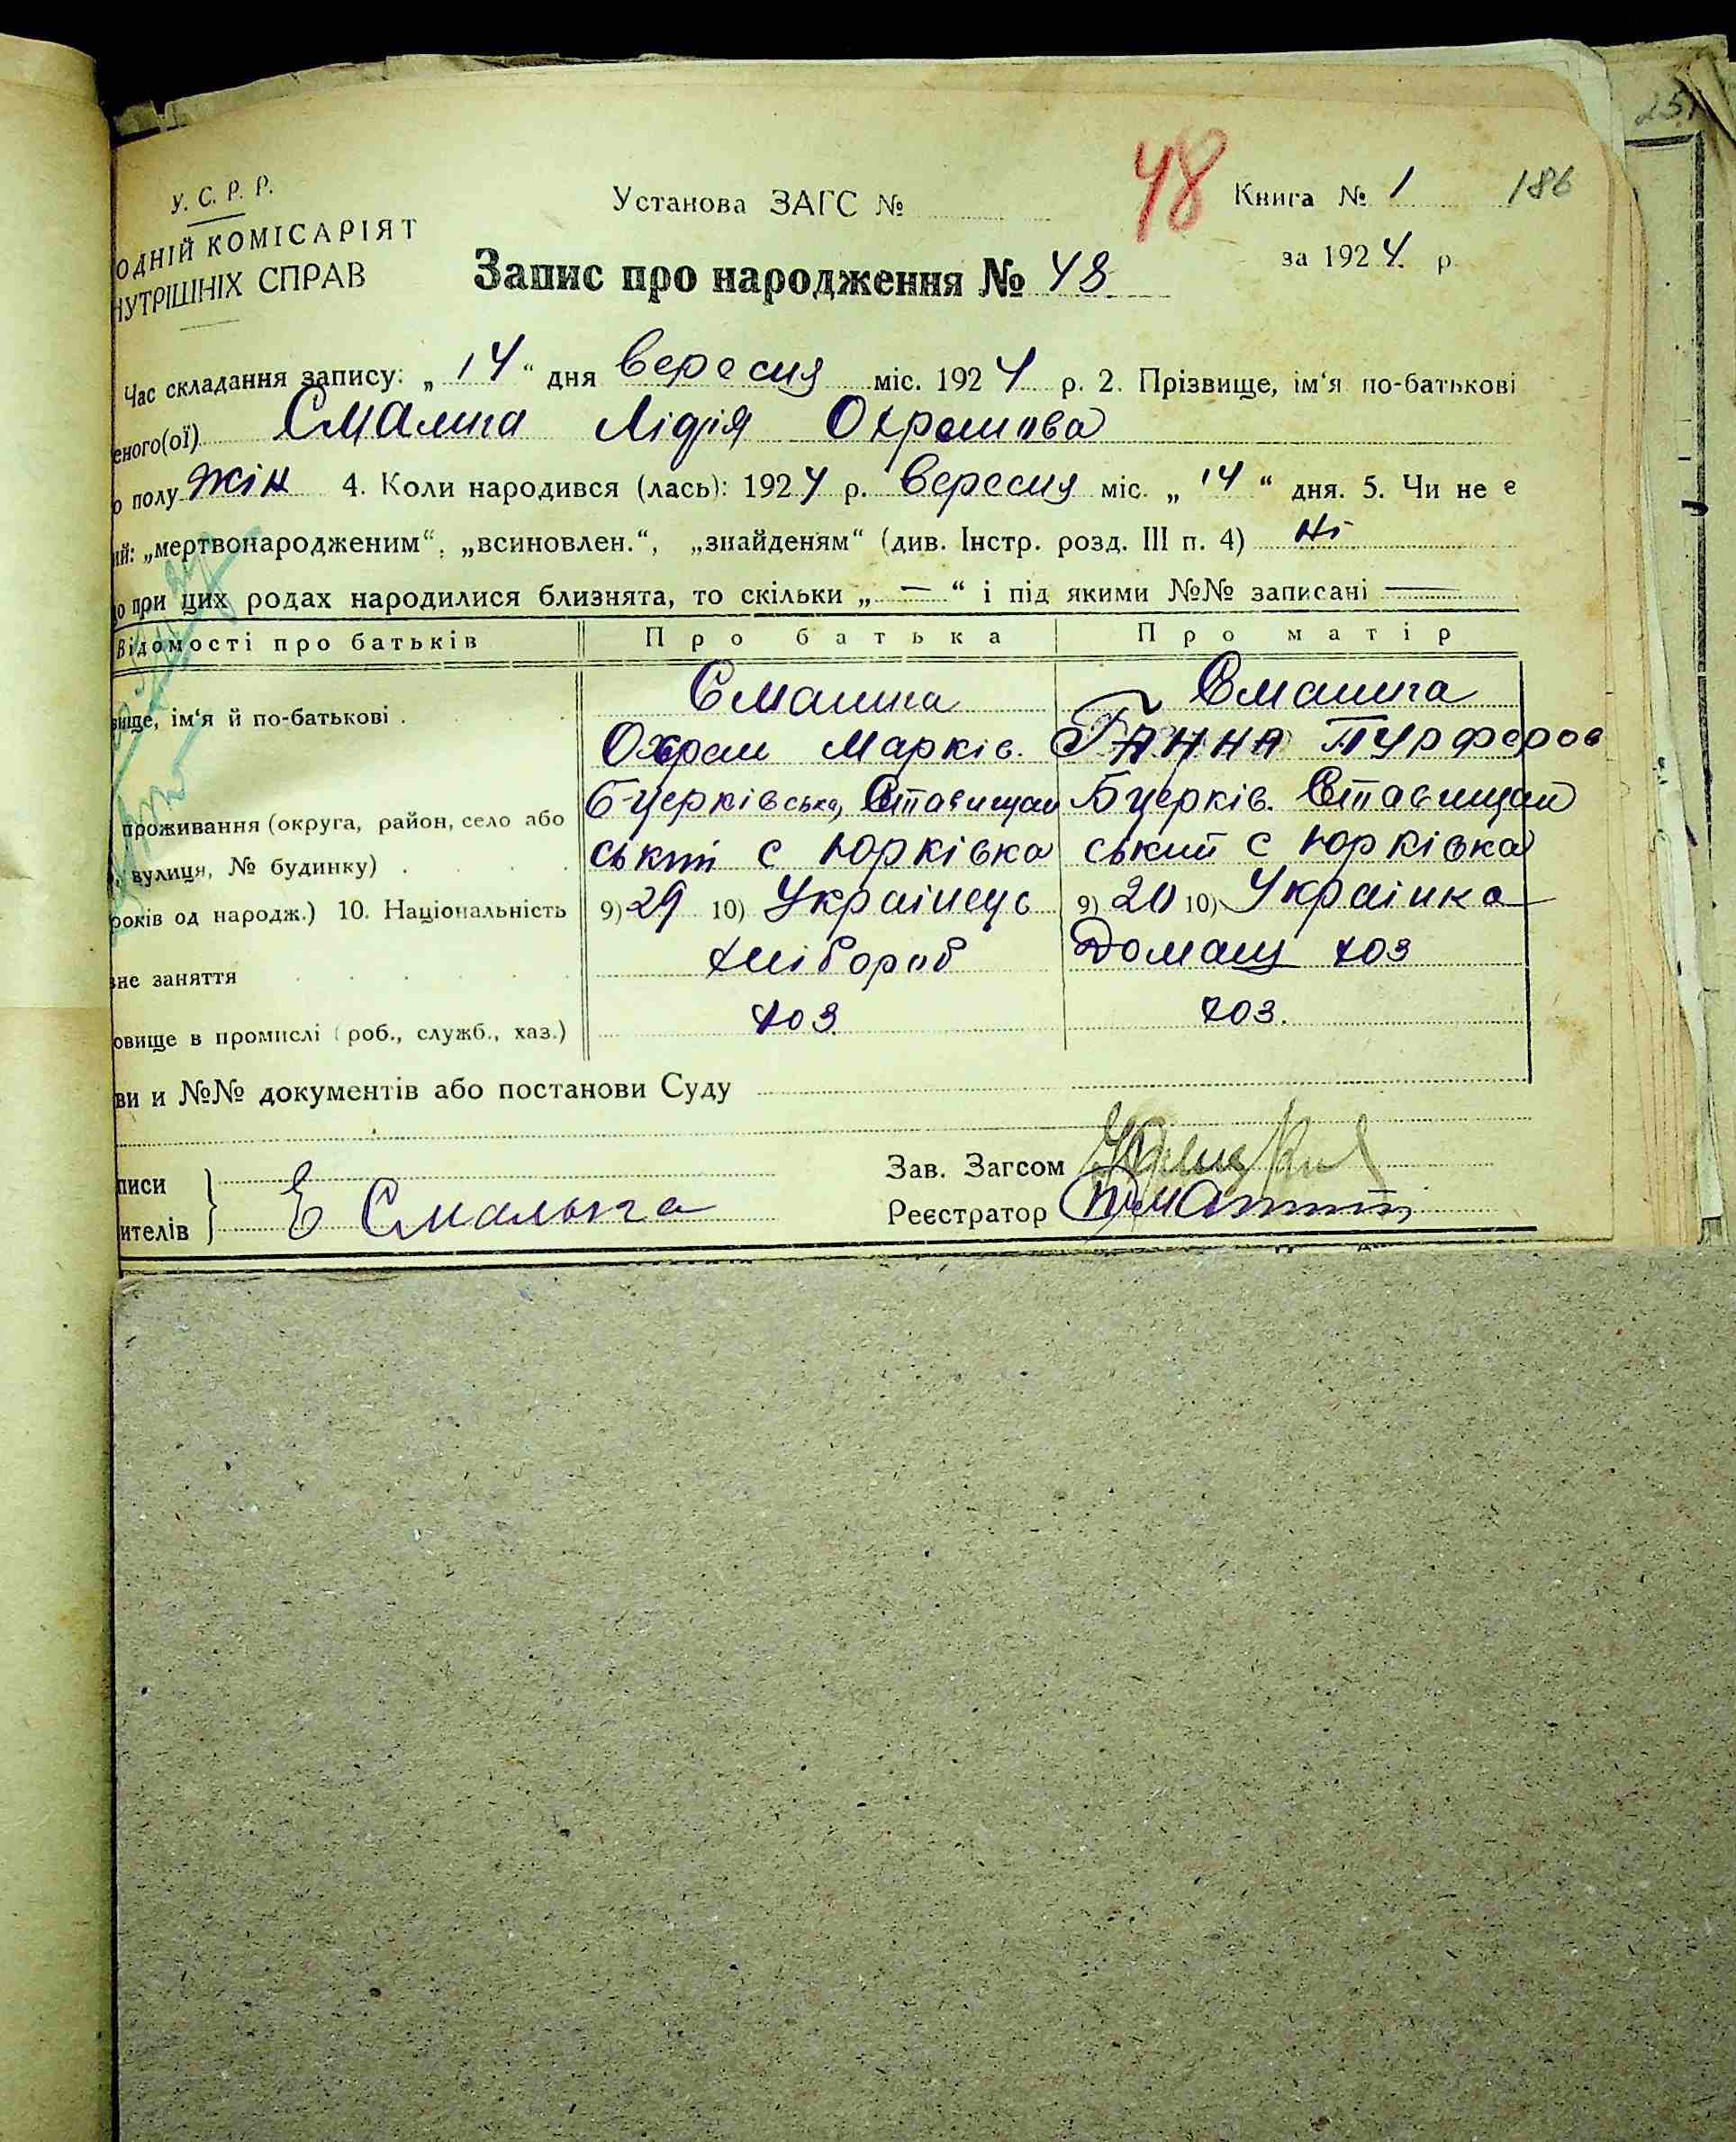 251
У. С. Р. Р.
ОДНІЙ КОМІСАРІЯТ
НУТРІШНІХ СПРАВ
Установа ЗАГС №
48
Книга № 1
186
за 1924 р.
Запис про народження № 48
Час складання запису: „ 14 “ дня Вересня міс. 1924 р. 2. Прізвище, ім‘я по-батькові
еного(ої) Смалига Лідія Охрамова
о полу жін 4. Коли народився (лась): 1924 р. Вересня міс. „ 14 “ дня. 5. Чи не є
ий: „мертвонародженим“, „всиновлен.“, „знайденям“ (див. Інстр. розд. III п. 4) Ні
о при цих родах народилися близнята, то скільки „ — “ і під якими №№ записані —
Відомості про батьків Про батька Про матір
вище, ім‘я й по-батькові . Смалига Смалига
Охрам Марків. Ганна Пурферов
проживання (округа, район, село або Б-церківська, Ставищан Бцерків. Ставищан
, вулиця, № будинку) . ський с Юрківка ський с Юрківка
років од народж.) 10. Національність 9) 29 10) Українець 9) 20 10) Українка
вне заняття хлібороб Домащ хоз
овище в промислі (роб., служб., хаз.) хоз. хоз.
ви и №№ документів або постанови Суду
писи Зав. Загсом
ителів Е Смалыга Реєстратор